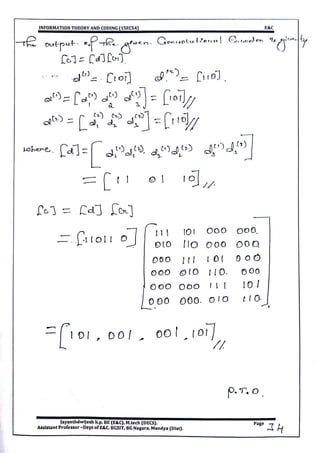 INFORMATION THEORY AND CODING (15EC54) E&C
The output of the given Convolutional Encoder is given by
[C] = [d][G]
d⁽¹⁾ = [101] d⁽²⁾ = [110].
d⁽¹⁾ = [d₁⁽¹⁾ d₂⁽¹⁾ d₃⁽¹⁾] = [101]//
d⁽²⁾ = [d₁⁽²⁾ d₂⁽²⁾ d₃⁽²⁾] = [110]//
where, [d] = [d₁⁽¹⁾d₁⁽²⁾. d₂⁽¹⁾d₂⁽²⁾ d₃⁽¹⁾d₃⁽²⁾]
= [11 01 10]//
[C] = [d] [G]
= [11011 0] [111 101 000 000.
010 110 000 000
000 111 101 000
000 010 110. 000
000 000 111 101
000 000. 010 110]
= [101, 001, 001, 101]//
P.T.O.
Jayanthdwijesh h.p. BE (E&C), M.tech (DECS).
Assistant Professor – Dept of E&C. BGSIT, BG Nagara, Mandya (Dist). Page 14